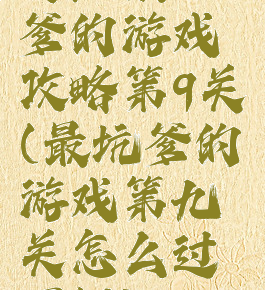 爹的游戏
攻略第9关
(最坑爹的
游戏第九
关怎么过